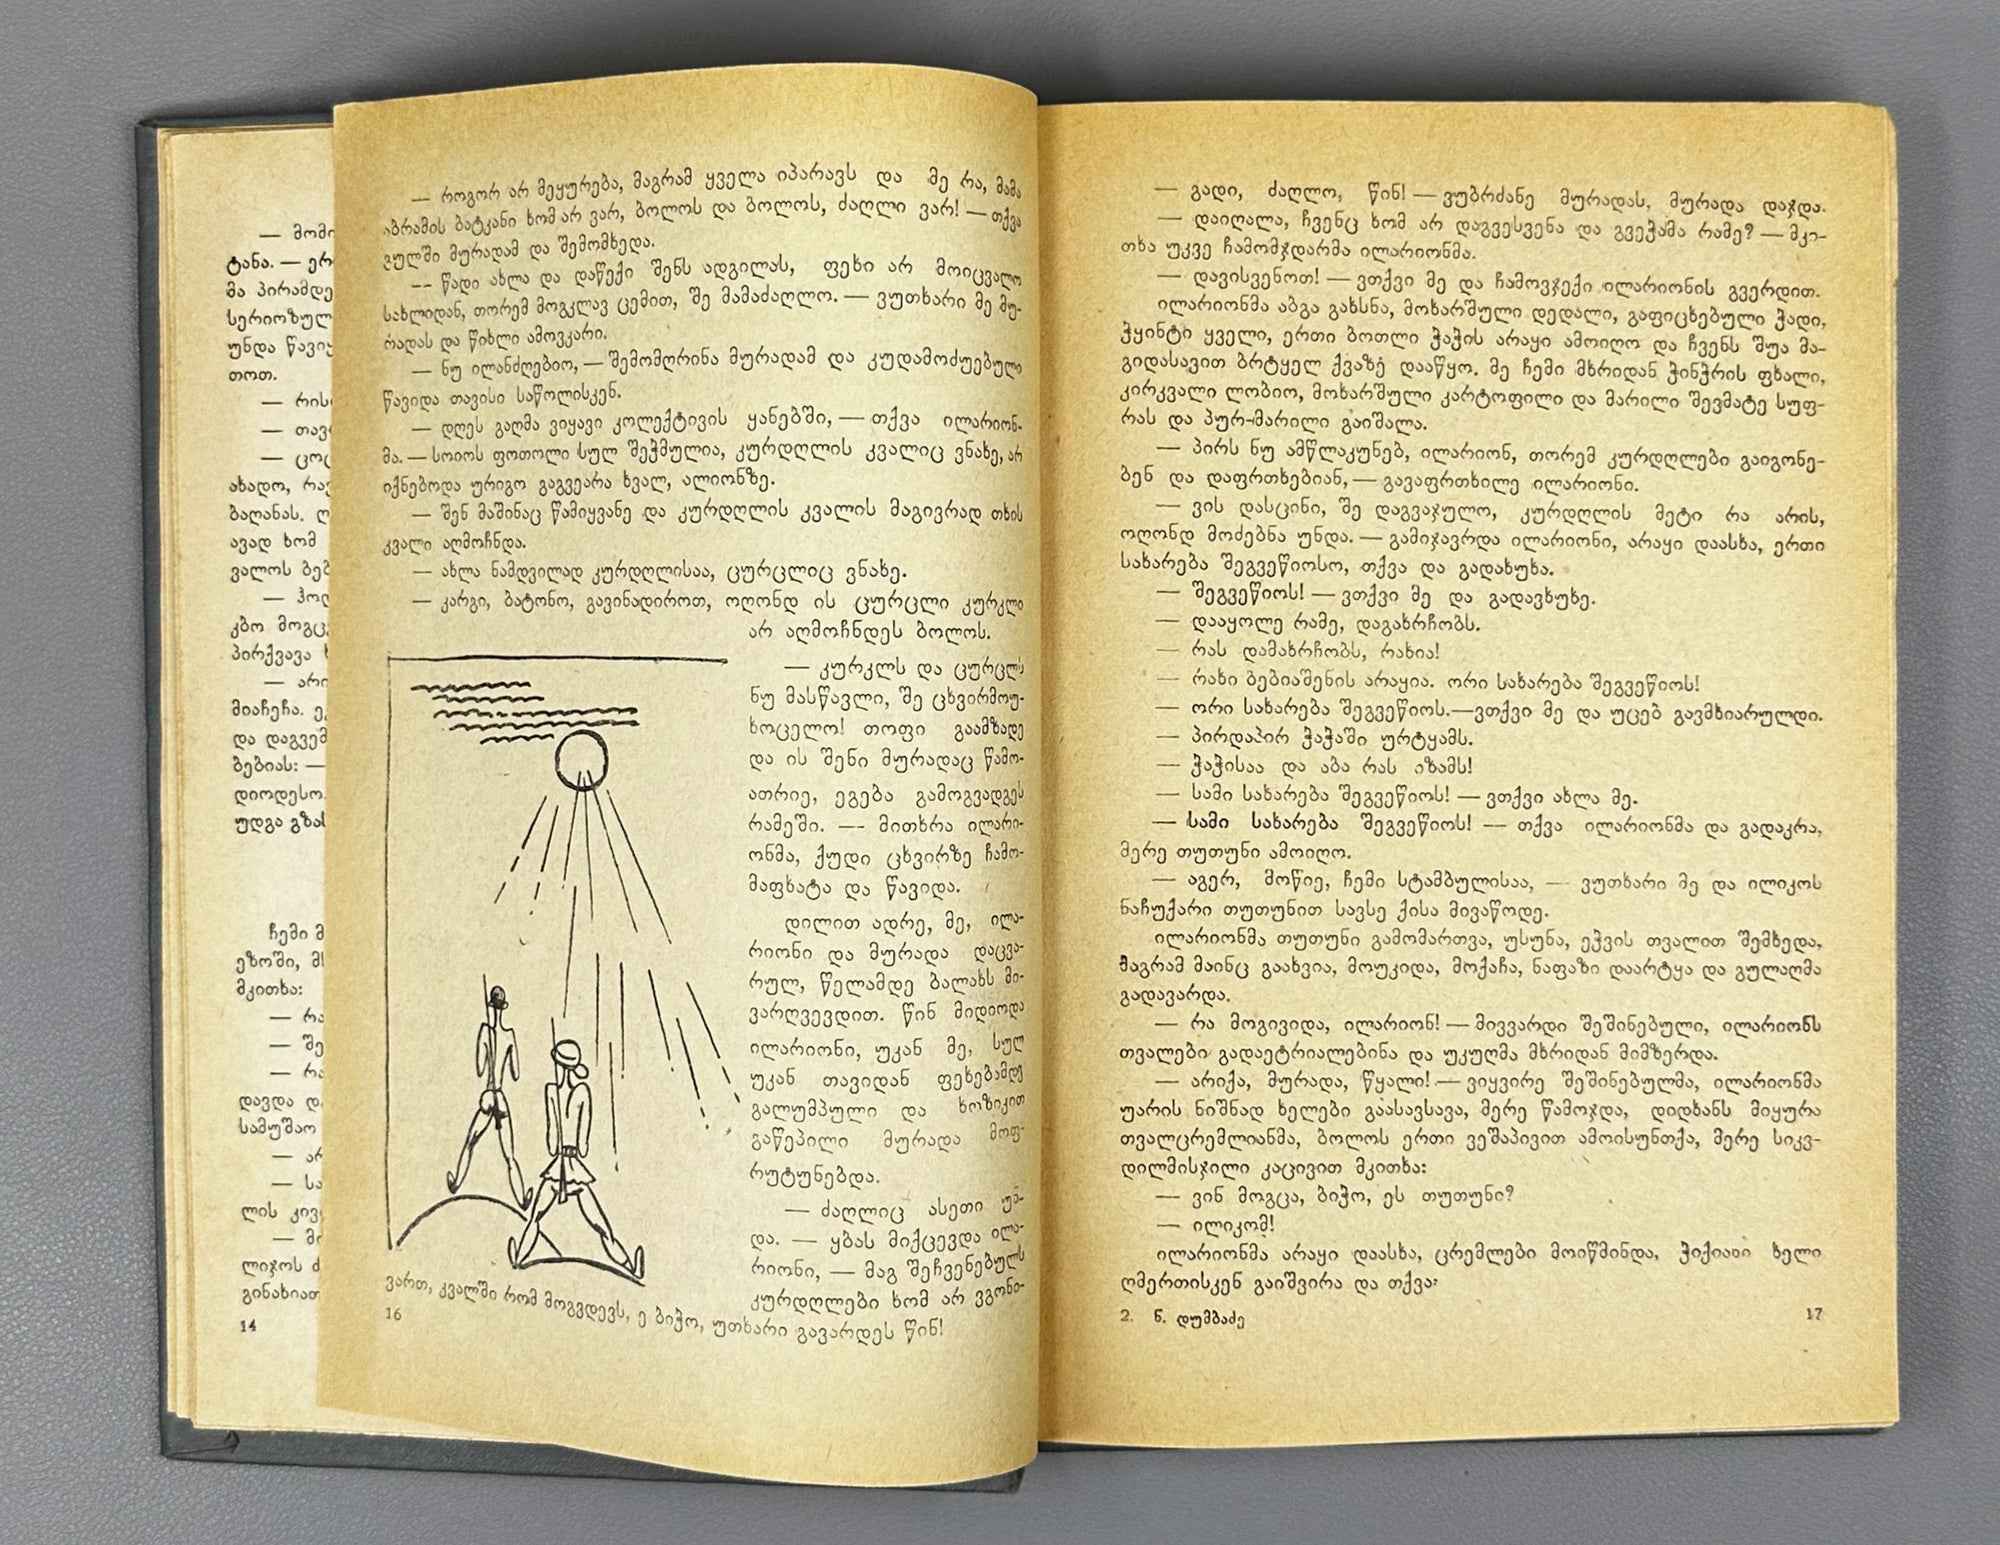 — მომი
ტანა. — ერ
მა პირამდე
სერიოზულ
უნდა წავიყ
თოთ.
— რის
— თავ
— ცოც
ახადო, რა
ბაღანას. ღ
ავად ხომ
ვალოს ბებ
— ჰოდ
კბო მოგც
პირქვავა
— არი
მიაჩეჩა. ე
და დაგვემ
ბებიას: —
დიოდესო.
უდგა გზას
ჩემი მ
ეზოში, მ
მკითხა:
— რა
— შე
— რა
დავდა დ
სამუშაო
— არ
— სა
ლის კივ
— მ
ლიჯოს ძ
გინახიათ
14
— როგორ არ მეყურება, მაგრამ ყველა იპარავს და მე რა, მამა
აბრამის ბატკანი ხომ არ ვარ, ბოლოს და ბოლოს, ძაღლი ვარ! — თქვა
გულში მურადამ და შემომხედა.
— წადი ახლა და დაწექი შენს ადგილას, ფეხი არ მოიცვალო
სახლიდან, თორემ მოგკლავ ცემით, შე მამაძაღლო. — ვუთხარი მე მუ-
რადას და წიხლი ამოვკარი.
— ნუ ილანძღებიო, — შემომღრინა მურადამ და კუდამოძუებული
წავიდა თავისი საწოლისკენ.
— დღეს გაღმა ვიყავი კოლექტივის ყანებში, — თქვა ილარიონ-
მა. — სოიოს ფოთოლი სულ შეჭმულია, კურდღლის კვალიც ვნახე, არ
იქნებოდა ურიგო გაგვეარა ხვალ, ალიონზე.
— შენ მაშინაც წამიყვანე და კურდღლის კვალის მაგივრად თხის
კვალი აღმოჩნდა.
— ახლა ნამდვილად კურდღლისაა, ცურცლიც ვნახე.
— კარგი, ბატონო, გავინადიროთ, ოღონდ ის ცურცლი კურკლი
არ აღმოჩნდეს ბოლოს.
— კურკლს და ცურცლს
ნუ მასწავლი, შე ცხვირმოუ-
ხოცელო! თოფი გაამზადე
და ის შენი მურადაც წამო-
ათრიე, ეგება გამოგვადგეს
რამეში. — მითხრა ილარი-
ონმა, ქუდი ცხვირზე ჩამო-
მაფხატა და წავიდა.
დილით ადრე, მე, ილა-
რიონი და მურადა დაცვა-
რულ, წელამდე ბალახს მი-
ვარღვევდით. წინ მიდიოდა
ილარიონი, უკან მე, სულ
უკან თავიდან ფეხებამდე
გალუმპული და ხოზიკით
გაწეპილი მურადა მოფ-
რუტუნებდა.
— ძაღლიც ასეთი უნ-
და. — ყბას მიქცევდა ილა-
რიონი, — მაგ შეჩვენებულს
კურდღლები ხომ არ ვგონი-
ვართ, კვალში რომ მოგვდევს, ე ბიჭო, უთხარი გავარდეს წინ!
16
— გადი, ძაღლო, წინ! — ვუბრძანე მურადას, მურადა დაჯდა.
— დაიღალა, ჩვენც ხომ არ დაგვესვენა და გვეჭამა რამე? — მკი-
თხა უკვე ჩამომჯდარმა ილარიონმა.
— დავისვენოთ! — ვთქვი მე და ჩამოვჯექი ილარიონის გვერდით.
ილარიონმა აბგა გახსნა, მოხარშული დედალი, გაფიცხებული ჭადი,
ჭყინტი ყველი, ერთი ბოთლი ჭაჭის არაყი ამოიღო და ჩვენს შუა მა-
გიდასავით ბრტყელ ქვაზე დააწყო. მე ჩემი მხრიდან ჭინჭრის ფხალი,
კირკვალი ლობიო, მოხარშული კარტოფილი და მარილი შევმატე სუფ-
რას და პურ-მარილი გაიშალა.
— პირს ნუ აწლაკუნებ, ილარიონ, თორემ კურდღლები გაიგონე-
ბენ და დაფრთხებიან, — გავაფრთხილე ილარიონი.
— ვის დასცინი, შე დაგვაჯულო, კურდღლის მეტი რა არის,
ოღონდ მოძებნა უნდა. — გამიჯავრდა ილარიონი, არაყი დაასხა, ერთი
სახარება შეგვეწიოსო, თქვა და გადახუხა.
— შეგვეწიოს! — ვთქვი მე და გადავხუხე.
— დააყოლე რამე, დაგახრჩობს.
— რას დამახრჩობს, რახია!
— რახი ბებიაშენის არაყია. ორი სახარება შეგვეწიოს!
— ორი სახარება შეგვეწიოს.—ვთქვი მე და უცებ გავმხიარულდი.
— პირდაპირ ჭაჭაში ურტყამს.
— ჭაჭისაა და აბა რას იზამს!
— სამი სახარება შეგვეწიოს! — ვთქვი ახლა მე.
— სამი სახარება შეგვეწიოს! — თქვა ილარიონმა და გადაკრა,
მერე თუთუნი ამოიღო.
— აგერ, მოწიე, ჩემი სტამბულისაა, — ვუთხარი მე და ილიკოს
ნაჩუქარი თუთუნით სავსე ქისა მივაწოდე.
ილარიონმა თუთუნი გამომართვა, უსუნა, ეჭვის თვალით შემხედა,
მაგრამ მაინც გაახვია, მოუკიდა, მოქაჩა, ნაფაზი დაარტყა და გულაღმა
გადავარდა.
— რა მოგივიდა, ილარიონ! — მივვარდი შეშინებული, ილარიონს
თვალები გადაეტრიალებინა და უკუღმა მხრიდან მიმზერდა.
— არიქა, მურადა, წყალი! — ვიყვირე შეშინებულმა, ილარიონმა
უარის ნიშნად ხელები გაასავსავა, მერე წამოჯდა, დიდხანს მიყურა
თვალცრემლიანმა, ბოლოს ერთი ვეშაპივით ამოისუნთქა, მერე სიკვ-
დილმისჯილი კაცივით მკითხა:
— ვინ მოგცა, ბიჭო, ეს თუთუნი?
— ილიკომ!
ილარიონმა არაყი დაასხა, ცრემლები მოიწმინდა, ჭიქიანი ხელი
ღმერთისკენ გაიშვირა და თქვა:
2. ნ. დუმბაძე
17